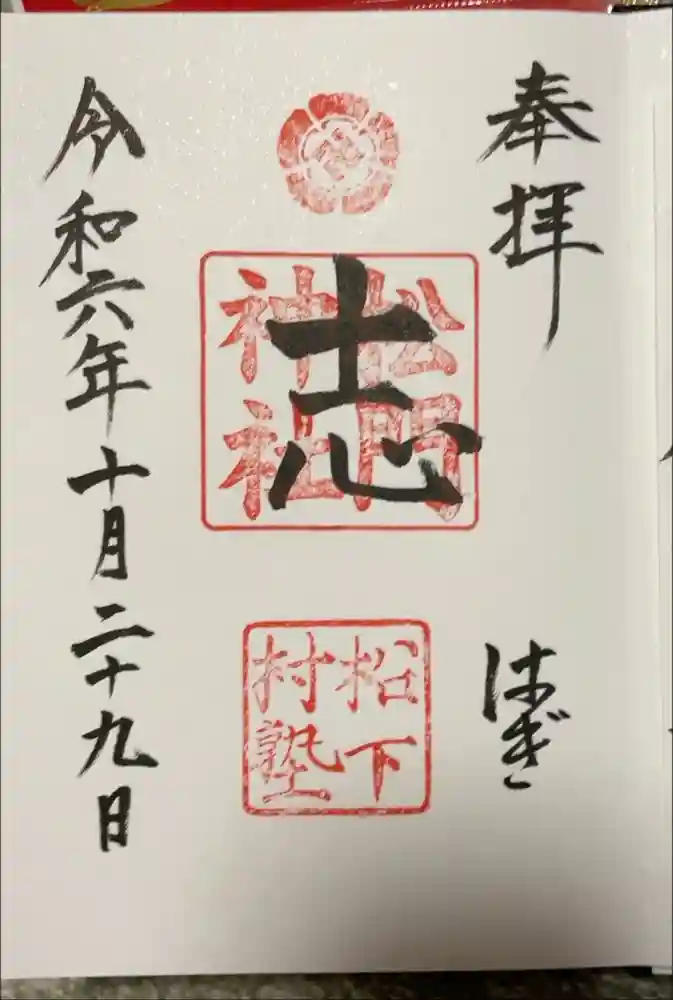 奉拝
はぎ
志
松門
神社
松下
村塾
令和六年十月二十九日